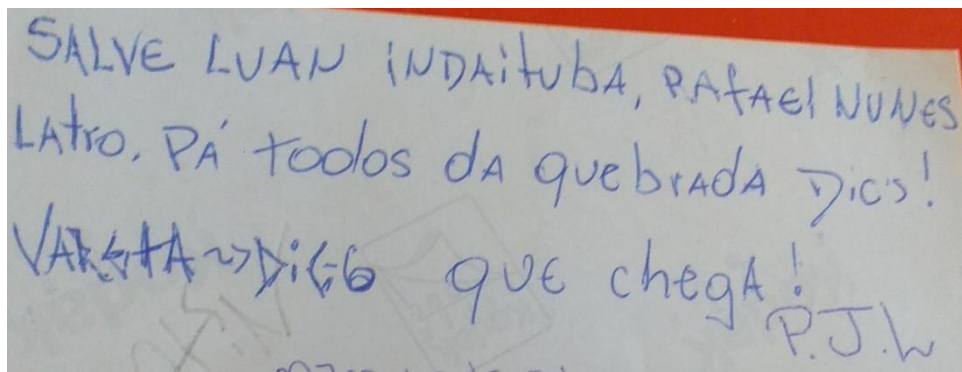 SALVE LUAN iNDAitubA, RAfAEl NUNES
LAtro. PÁ todos dA quebrAdA Dics!
VARGtA ~> DiEGO que chegA!
P.J.L